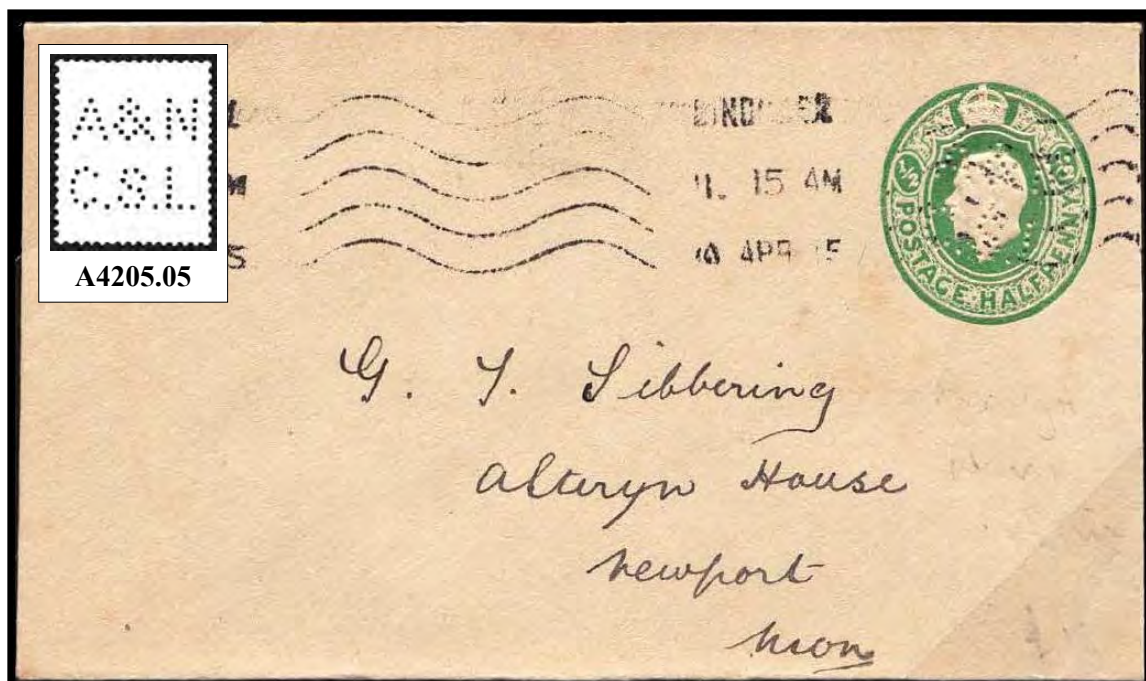 A&N
C.S.L.
A4205.05
15 AM
POSTAGE HALFPENNY
G. T. Sibbering
Alteryn House
Newport
Mon